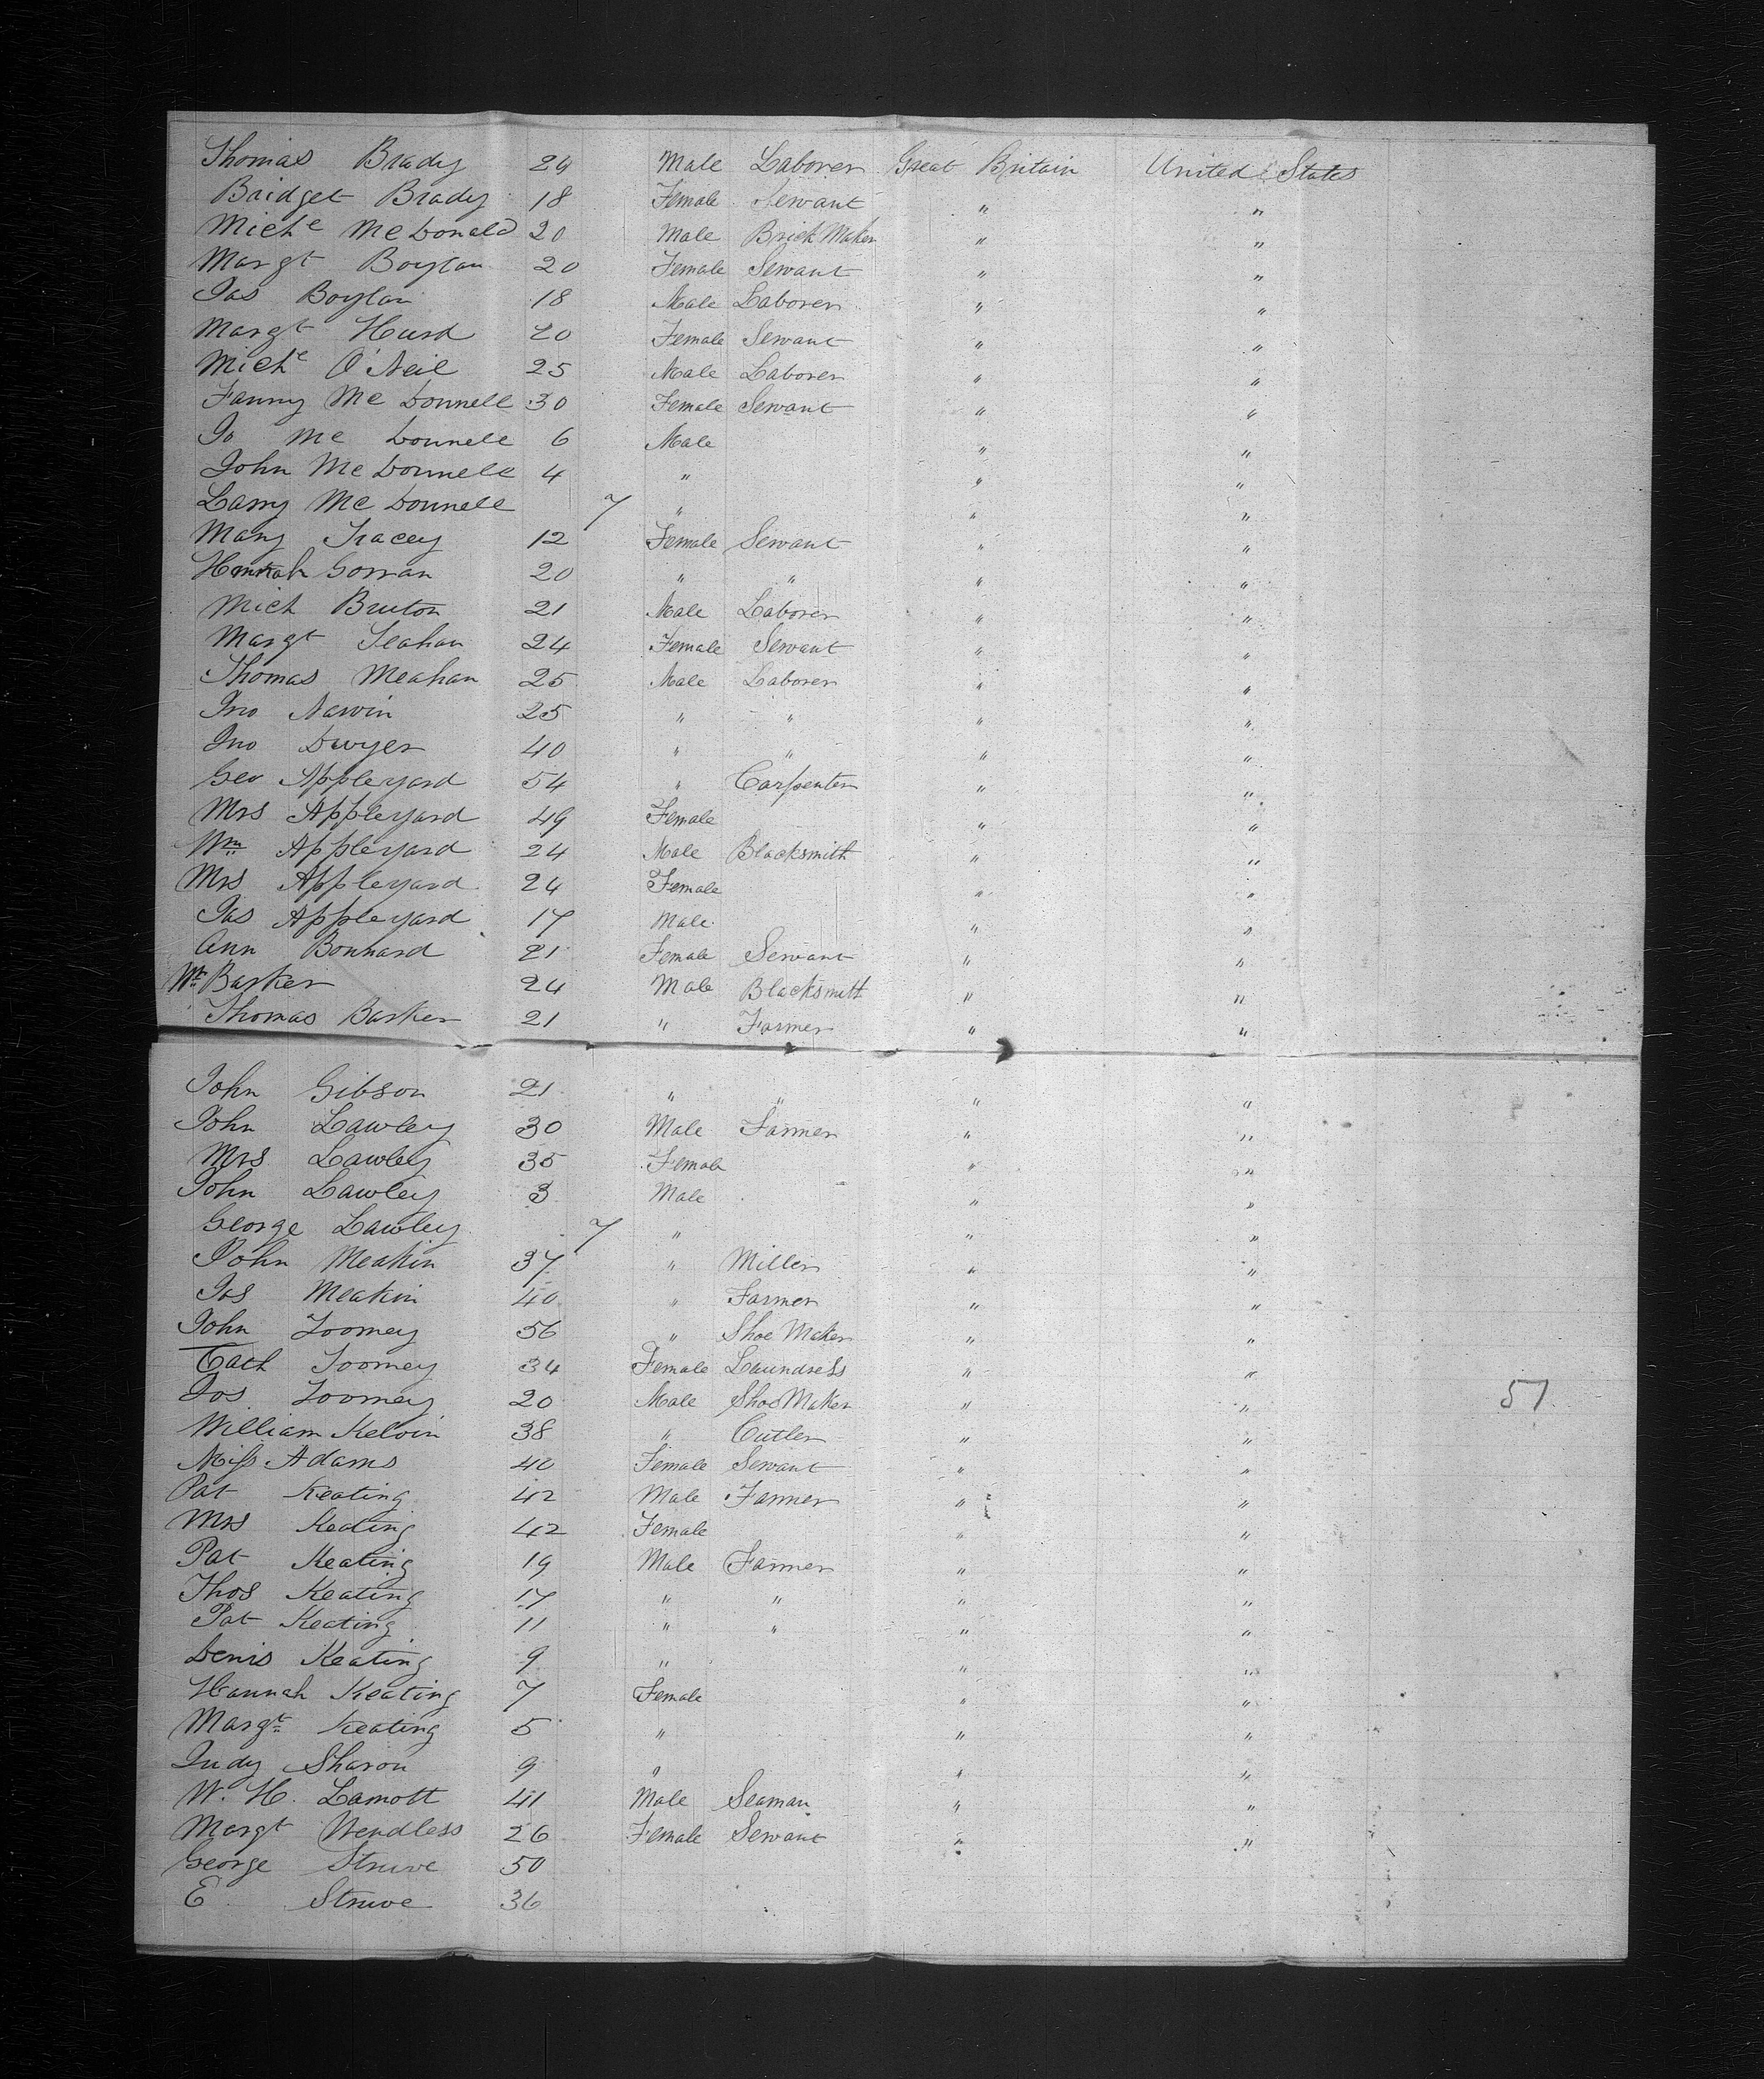 Thomas Brady 24 Male Laborer Great Britain United States
Bridget Brady 18 Female Servant " "
Miche McDonald 20 Male Brick Maker " "
Margt Boylan 20 Female Servant " "
Jas Boylan 18 Male Laborer " "
Margt Hurd 20 Female Servant " "
Miche O'Neil 25 Male Laborer " "
Fanny McDonnell 30 Female Servant " "
Jo McDonnell 6 Male " "
John McDonnell 4 " " "
Larry McDonnell 7 " " "
Mary Tracey 12 Female Servant " "
Gorman 20 " " " "
Mich Bruton 21 Male Laborer " "
Margt Leahan 24 Female Servant " "
Thomas Meahan 25 Male Laborer " "
Jno Narvin 25 " " " "
Jno Dwyer 40 " " " "
Geo Appleyard 54 " Carpenter " "
Mrs Appleyard 49 Female " "
Wm Appleyard 24 Male Blacksmith " "
Mrs Appleyard 24 Female " "
Jas Appleyard 17 Male " "
Ann Bonnard 21 Female Servant " "
Barker 24 Male Blacksmith " "
Thomas Barker 21 " Farmer " "
John Gibson 21 " " " "
John Lawley 30 Male Farmer " "
Mrs Lawley 35 Female " "
John Lawley 3 Male " "
George Lawley 7 " " "
John Meakin 37 " Miller " "
Jos Meakin 40 " Farmer " "
John Toomey 56 " Shoe Maker " "
Cath Toomey 34 Female Laundress " "
Jos Toomey 20 Male Shoe Maker " " 57
William Kelvin 38 " Cutler " "
Miss Adams 40 Female Servant " "
Pat Keating 42 Male Farmer " "
Mrs Keating 42 Female " "
Pat Keating 19 Male Farmer " "
Thos Keating 17 " " " "
Pat Keating 11 " " " "
Denis Keating 9 " " "
Hannah Keating 7 Female " "
Margt Keating 5 " " "
Judy Sharon 9 " " "
W. H. Lamott 41 Male Seaman " "
Margt Wendless 26 Female Servant " "
George Struve 50
E Struve 36